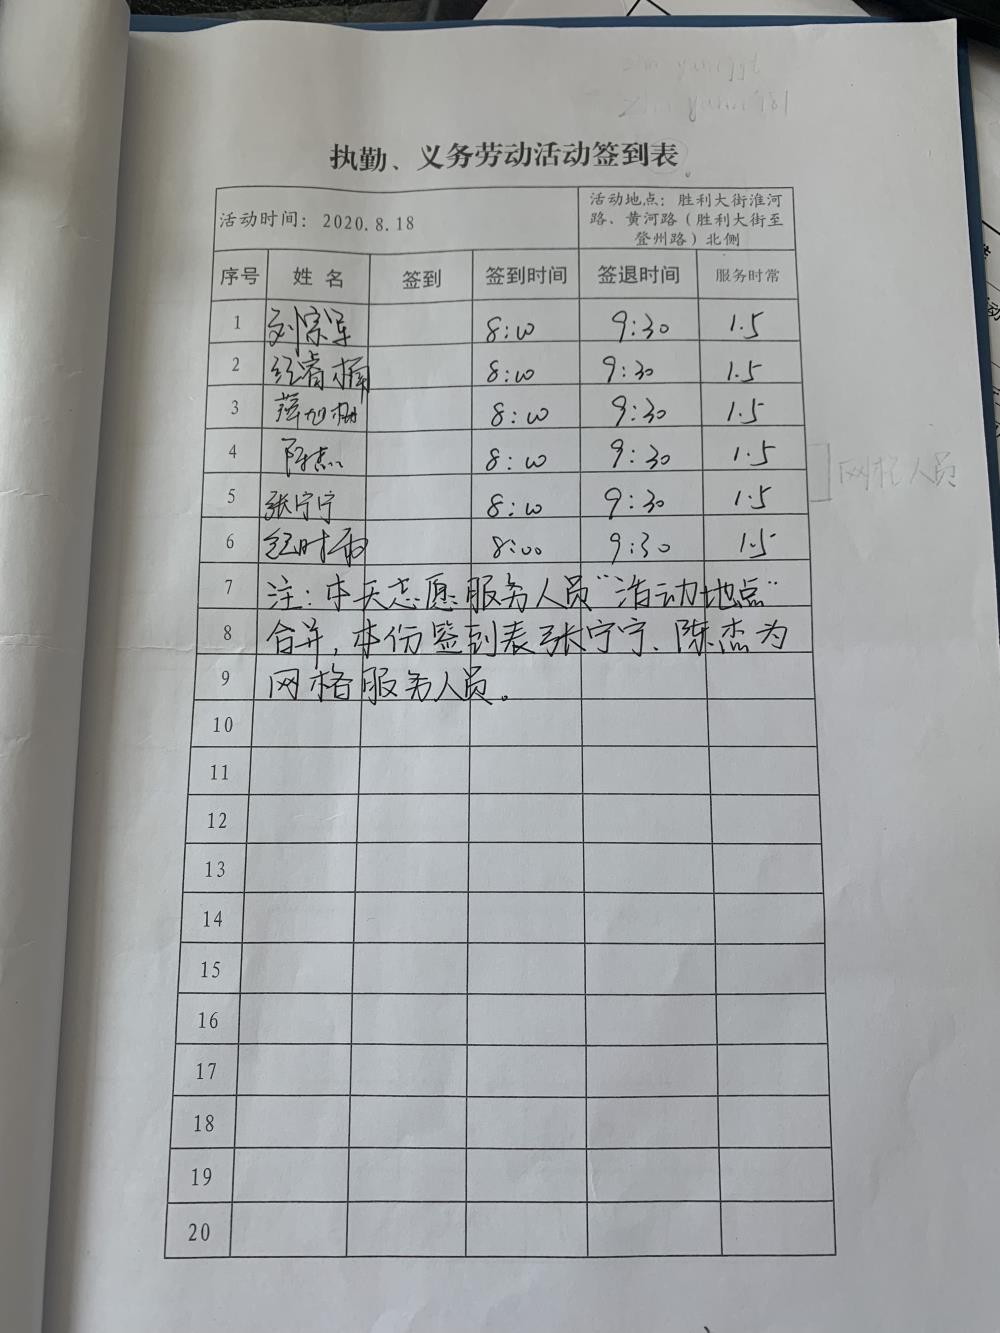 执勤、义务劳动活动签到表
活动时间：2020.8.18
活动地点：胜利大街淮河
路、黄河路（胜利大街至
登州路）北侧
序号 姓名 签到 签到时间 签退时间 服务时常
1 刘宗军 8:00 9:30 1.5
2 8:00 9:30 1.5
3 8:00 9:30 1.5
4 陈杰 8:00 9:30 1.5
5 张宁宁 8:00 9:30 1.5
网格人员
6 纪时雨 8:00 9:30 1.5
7 注：本天志愿服务人员“活动地点”
8 合并，本份签到表张宁宁、陈杰为
9 网格服务人员。
10
11
12
13
14
15
16
17
18
19
20